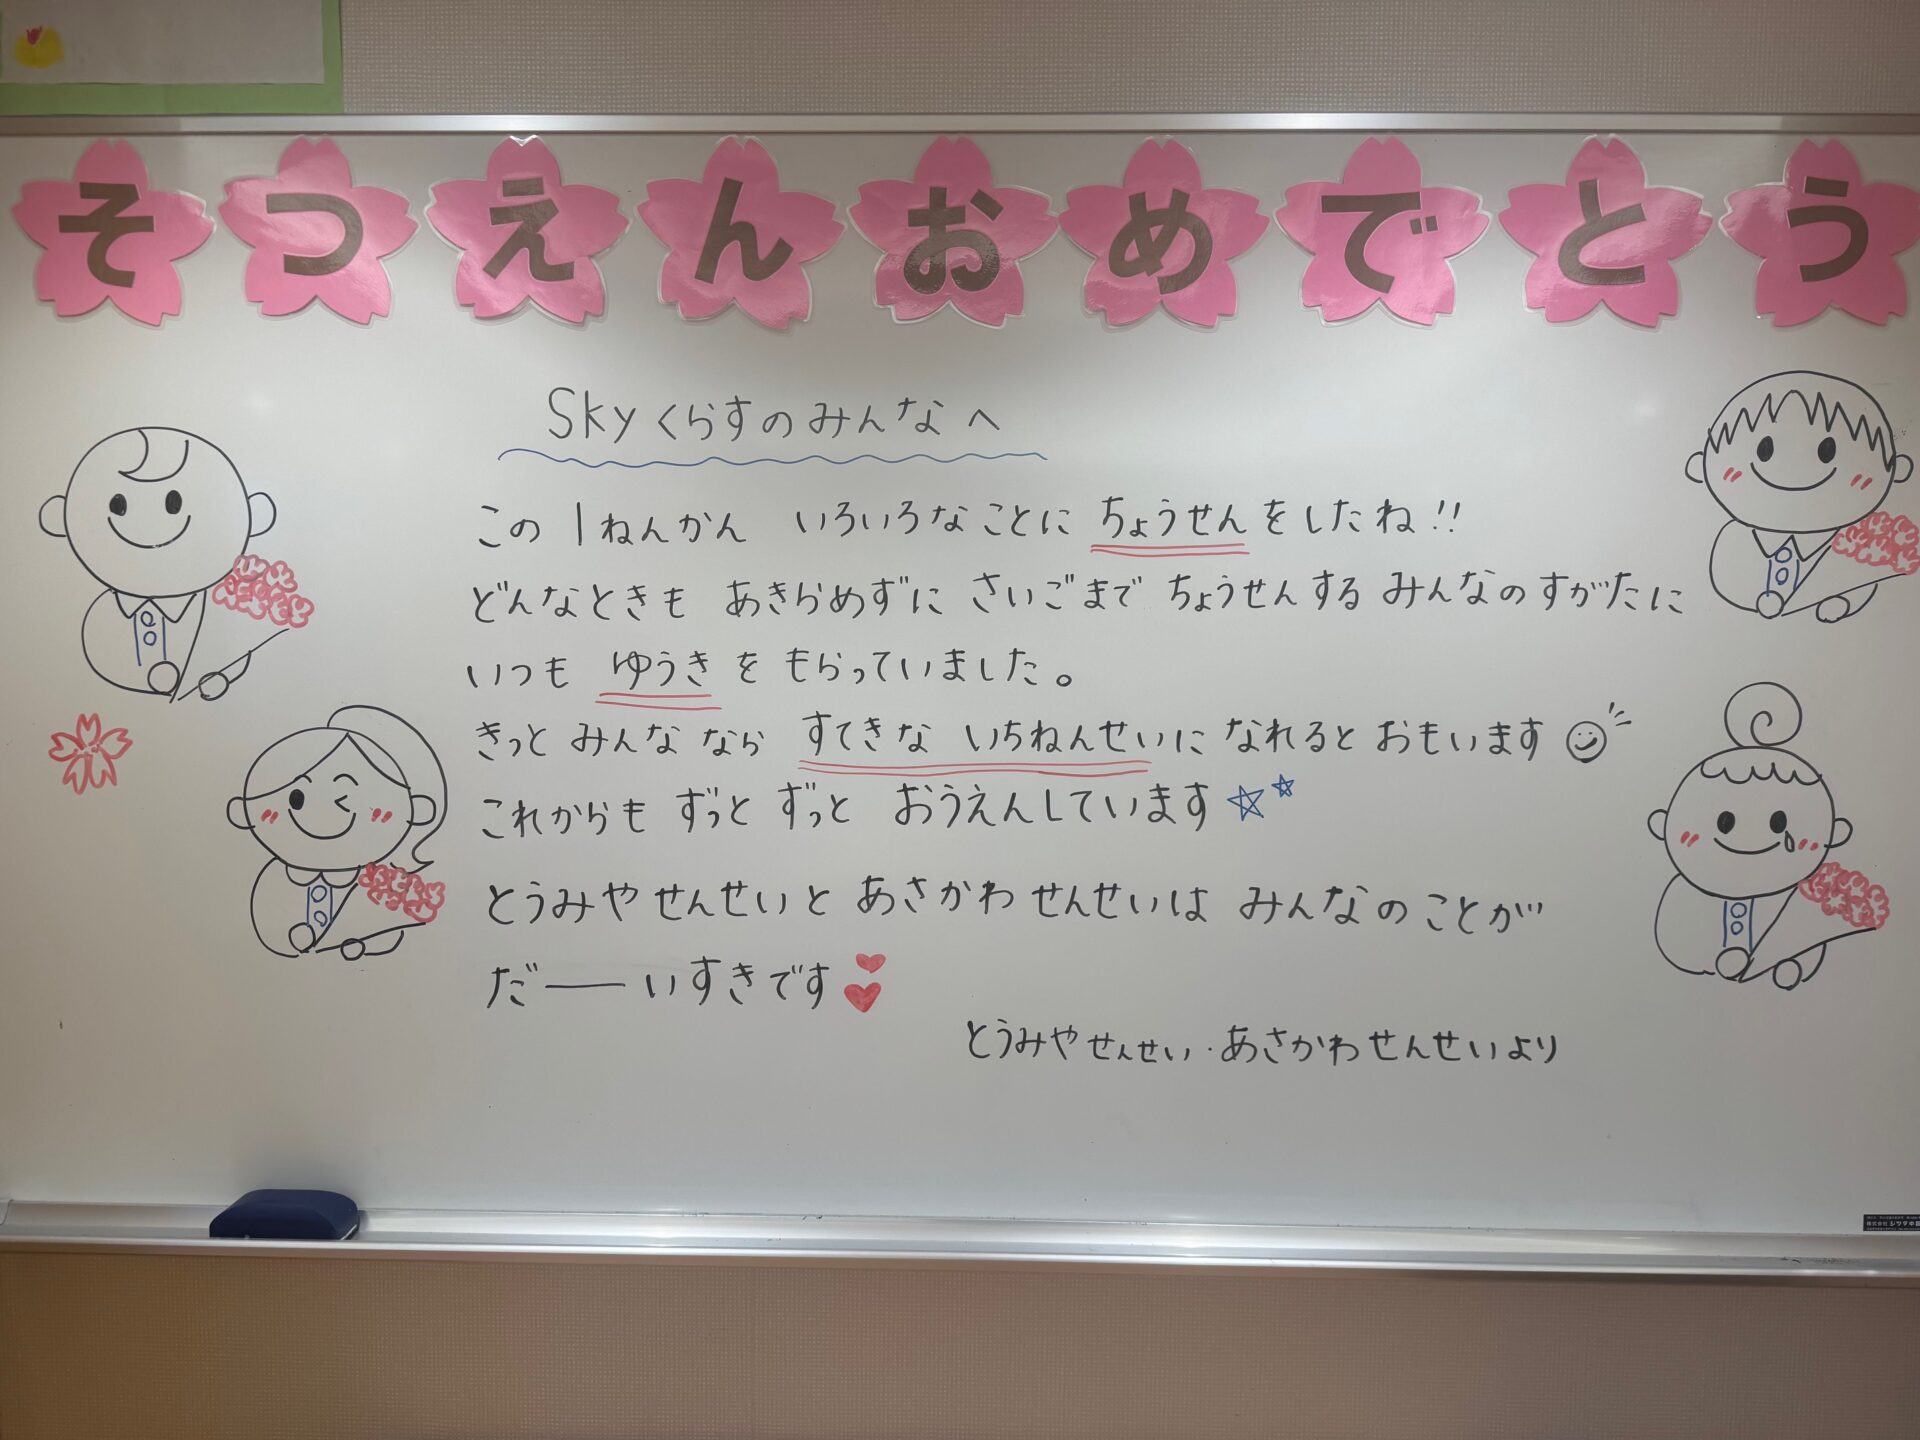 そつえんおめでとう
Skyくらすのみんなへ
この1ねんかん いろいろなことに ちょうせんをしたね!!
どんなときも あきらめずに さいごまで ちょうせんする みんなのすがたに
いつも ゆうきを もらっていました。
きっと みんななら すてきな いちねんせいに なれると おもいます
これからも ずっと ずっと おうえんしています
とうみやせんせいと あさかわせんせいは みんなのことが
だーいすきです
とうみやせんせい・あさかわせんせいより